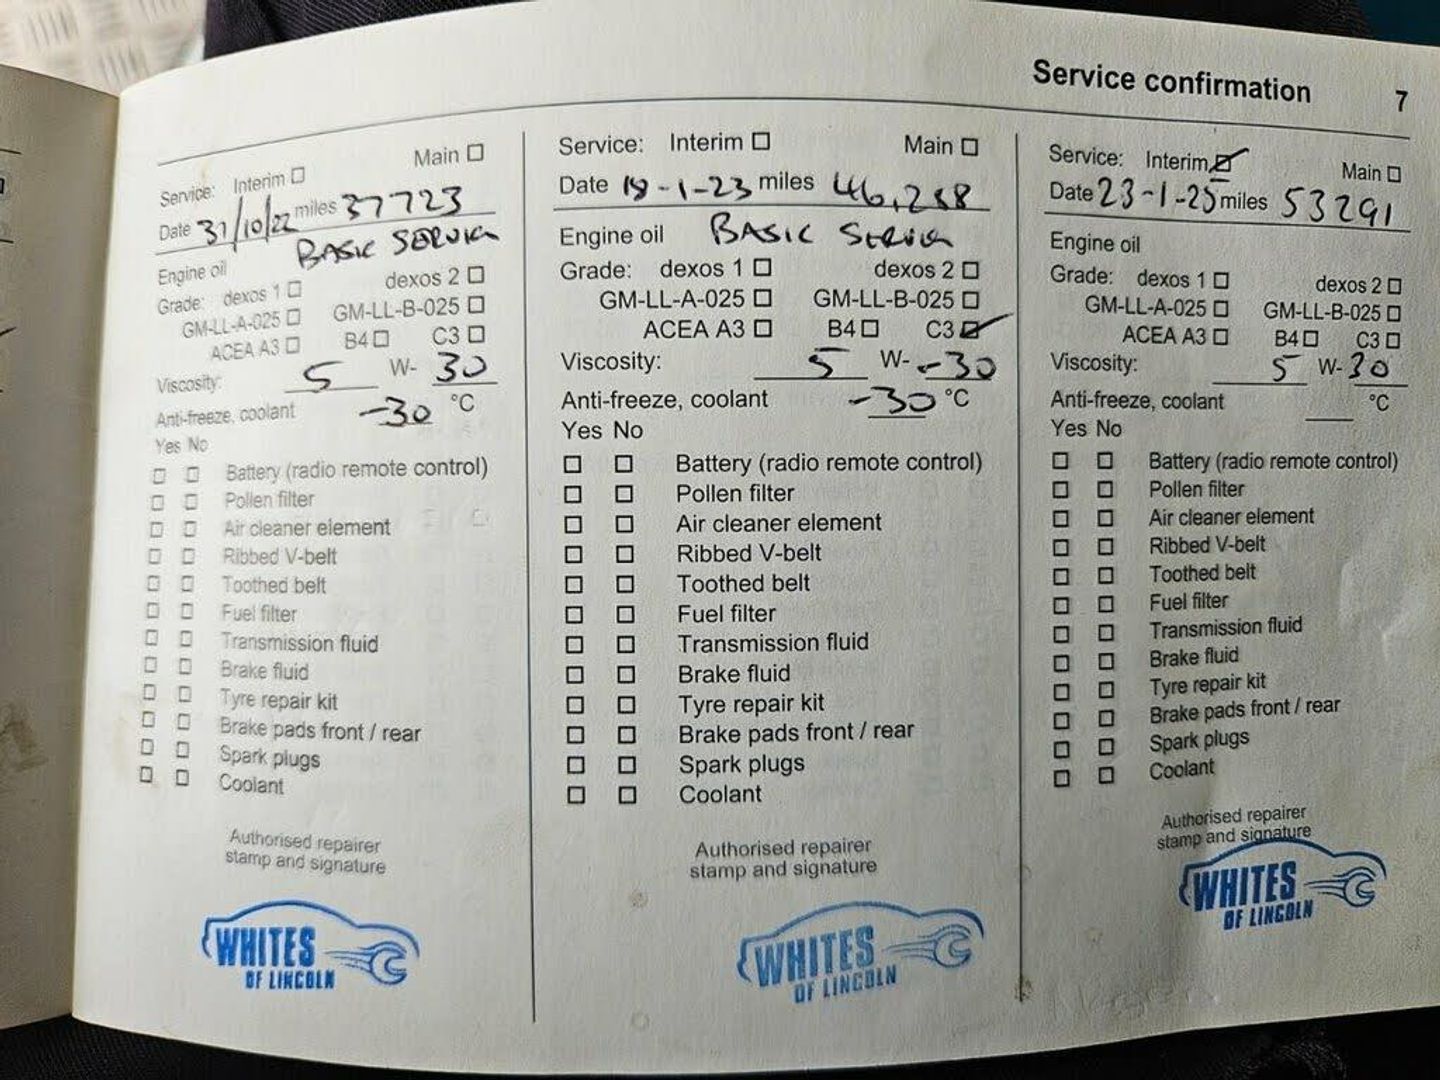 Service confirmation 7
Service: Interim Main
Date 31/10/22 miles 37723
BASIC SERVICE
Engine oil
Grade: dexos 1 dexos 2
GM-LL-A-025 GM-LL-B-025
ACEA A3 B4 C3
Viscosity: 5 W- 30
Anti-freeze, coolant -30 °C
Yes No
Battery (radio remote control)
Pollen filter
Air cleaner element
Ribbed V-belt
Toothed belt
Fuel filter
Transmission fluid
Brake fluid
Tyre repair kit
Brake pads front / rear
Spark plugs
Coolant
Authorised repairer
stamp and signature
WHITES
OF LINCOLN
Service: Interim Main
Date 18-1-23 miles 46,288
Engine oil BASIC SERVICE
Grade: dexos 1 dexos 2
GM-LL-A-025 GM-LL-B-025
ACEA A3 B4 C3
Viscosity: 5 W- -30
Anti-freeze, coolant -30 °C
Yes No
Battery (radio remote control)
Pollen filter
Air cleaner element
Ribbed V-belt
Toothed belt
Fuel filter
Transmission fluid
Brake fluid
Tyre repair kit
Brake pads front / rear
Spark plugs
Coolant
Authorised repairer
stamp and signature
WHITES
OF LINCOLN
Service: Interim Main
Date 23-1-25 miles 53291
Engine oil
Grade: dexos 1 dexos 2
GM-LL-A-025 GM-LL-B-025
ACEA A3 B4 C3
Viscosity: 5 W- 30
Anti-freeze, coolant °C
Yes No
Battery (radio remote control)
Pollen filter
Air cleaner element
Ribbed V-belt
Toothed belt
Fuel filter
Transmission fluid
Brake fluid
Tyre repair kit
Brake pads front / rear
Spark plugs
Coolant
Authorised repairer
stamp and signature
WHITES
OF LINCOLN